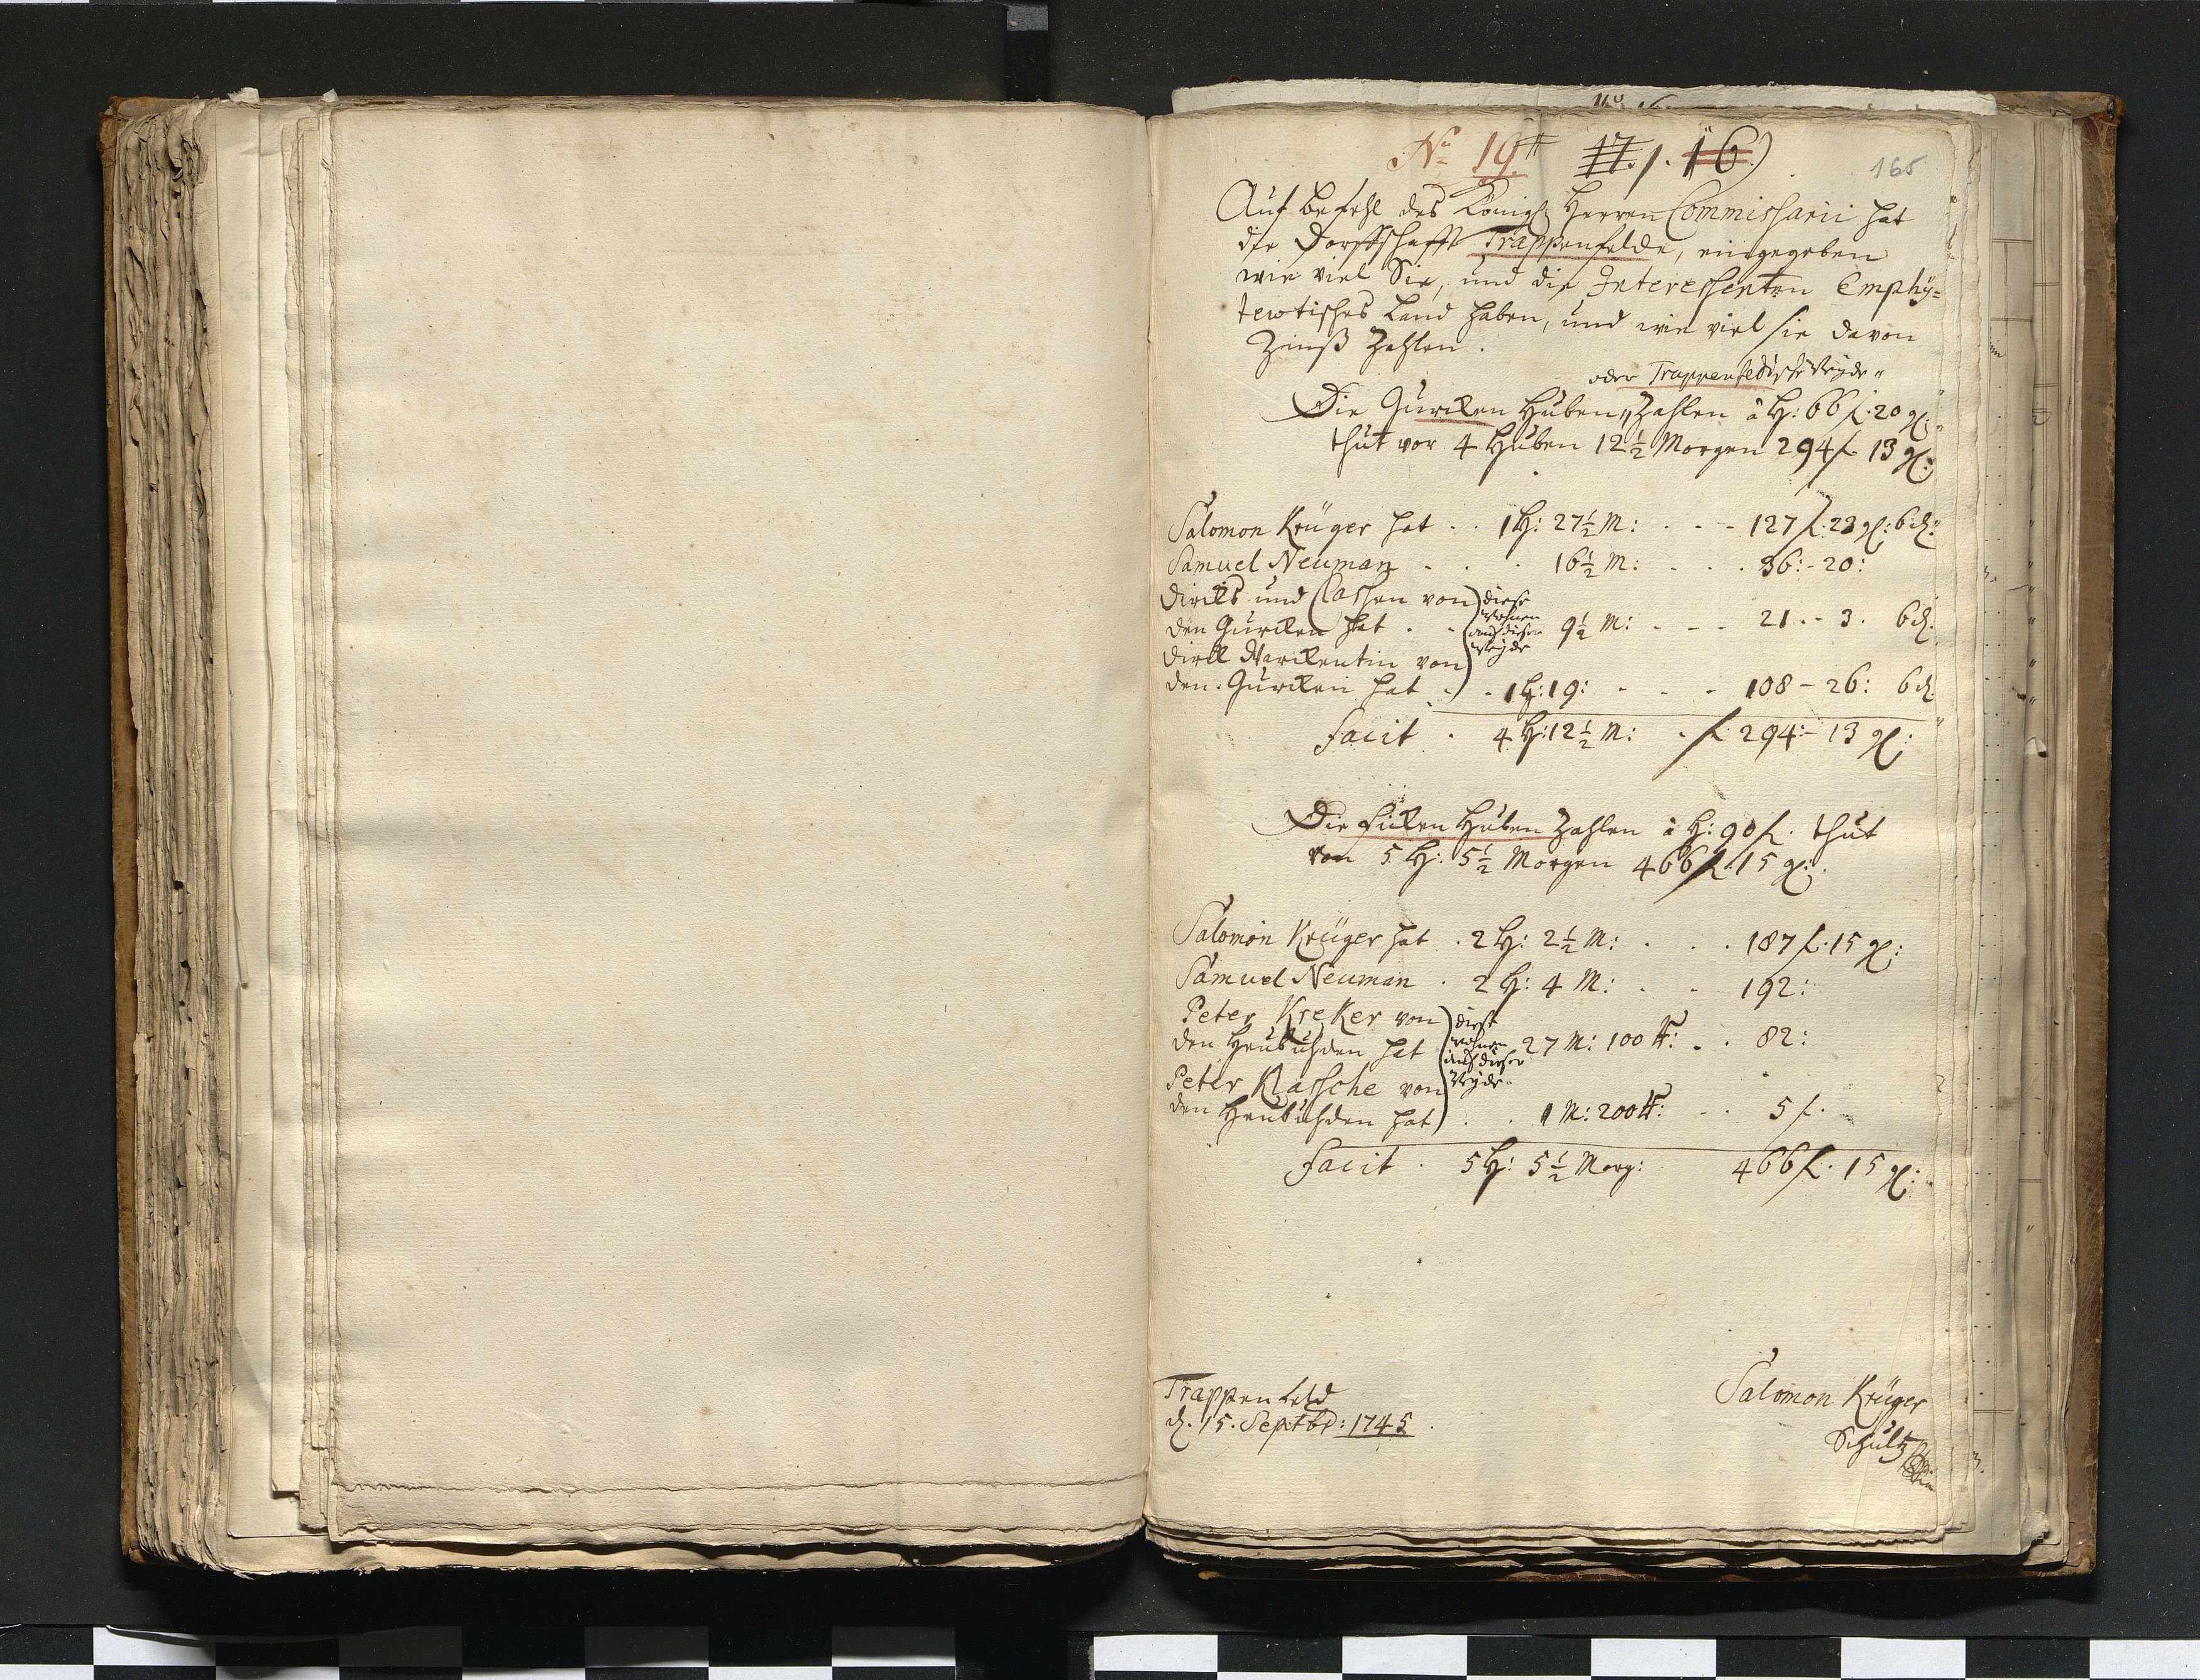 No 19 17./. 16)
165
Auf befehl des Königl: Herren Commissarii hat
die Dorffschafft Trappenfelde, eingegeben
wie viel Sie, und die Interessenten Emphy=
tewtisches Land haben, und wie viel sie davon
Zinß Zahlen.
oder Trappenfeldsche Weyde"
Die Gurcken Huben,, Zahlen â H: 66 f. 20 gl:
thut vor 4 Huben 12½ Morgen 294 f. 13 gl:
Salomon Krüger hat . . 1 H: 27½ M: . . - - 127 f. 23 gl: 6 d:
Samuel Neuman . . . 16½ M: . . . 36: - 20:
Dircks und Classen von diese
den Gurcken hat . . wohnen auf dieser Weyde 9½ M: - - - 21 . - 3. 6 d.
Dirck Warckentin von
den Gurcken hat . . 1 H: 19: - - - 108 - 26: 6 d.
Facit . 4 H: 12½ M: . f. 294: - 13 gl:
Die Ficken Huben Zahlen â H: 90 f. thut
von 5 H: 5½ Morgen 466 f. 15 gl:
Salomon Krüger hat . 2 H: 2½ M: . . . 187 f. 15 gl:
Samuel Neuman . 2 H: 4 M: . - 192:
Peter Kreker von diese
den Heubuhden hat wohnen auf dieser Weyde 27 M: 100 R: . . 82:
Peter Klassche von
den Heubuhden hat . . 1 M: 200 R: - . 5 f.
Facit . 5 H: 5½ Morg: 466 f. 15 gl:
Trappenfeld
d. 15. Septbr: 1745
Salomon Krüger
Schultz